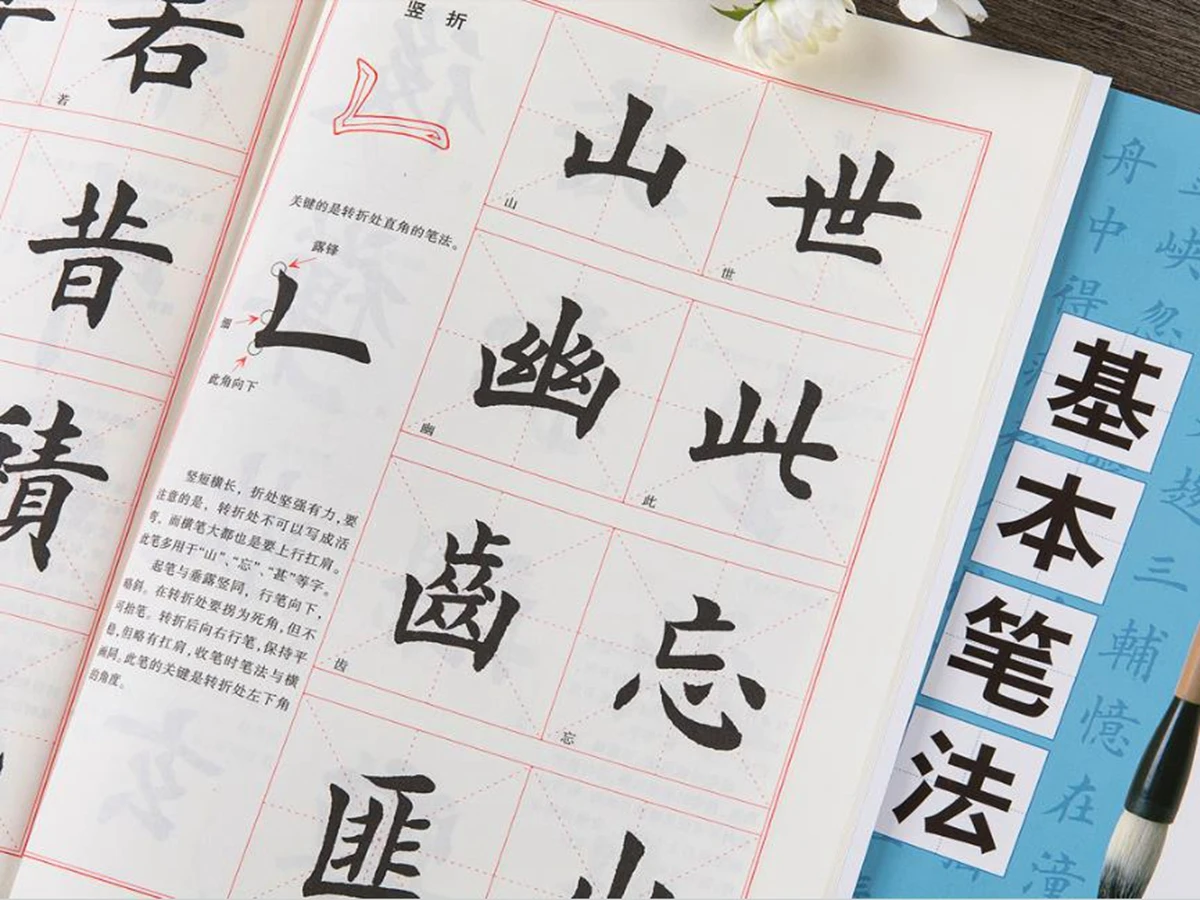 若
若
昔
積
竖折
关键的是转折处直角的笔法。
露锋
此角向下
竖短横长，折处坚强有力，要
注意的是，转折处不可以写成活
弯，而横笔大都也是要上行扛肩。
此笔多用于“山”、“忘”、“甚”等字。
起笔与垂露竖同，行笔向下，
略斜。在转折处要拐为死角，但不
可抬笔。转折后向右行笔，保持平
稳，但略有扛肩，收笔时笔法与横
画同。此笔的关键是转折处左下角
的角度。
山
世
山
世
幽
此
幽
此
齒
忘
齿
忘
匪
基
本
笔
法
舟
中
得
峡
忽
趣
三
輔
憶
在
潼